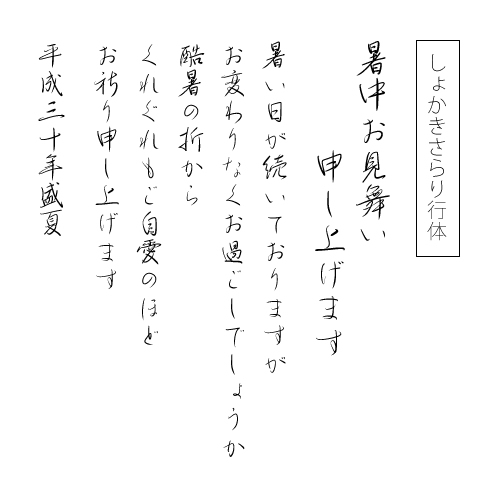 しょかきさらり行体
暑中お見舞い
申し上げます
暑い日が続いておりますが
お変わりなくお過ごしでしょうか
酷暑の折から
くれぐれもご自愛のほど
お祈り申し上げます
平成三十年盛夏